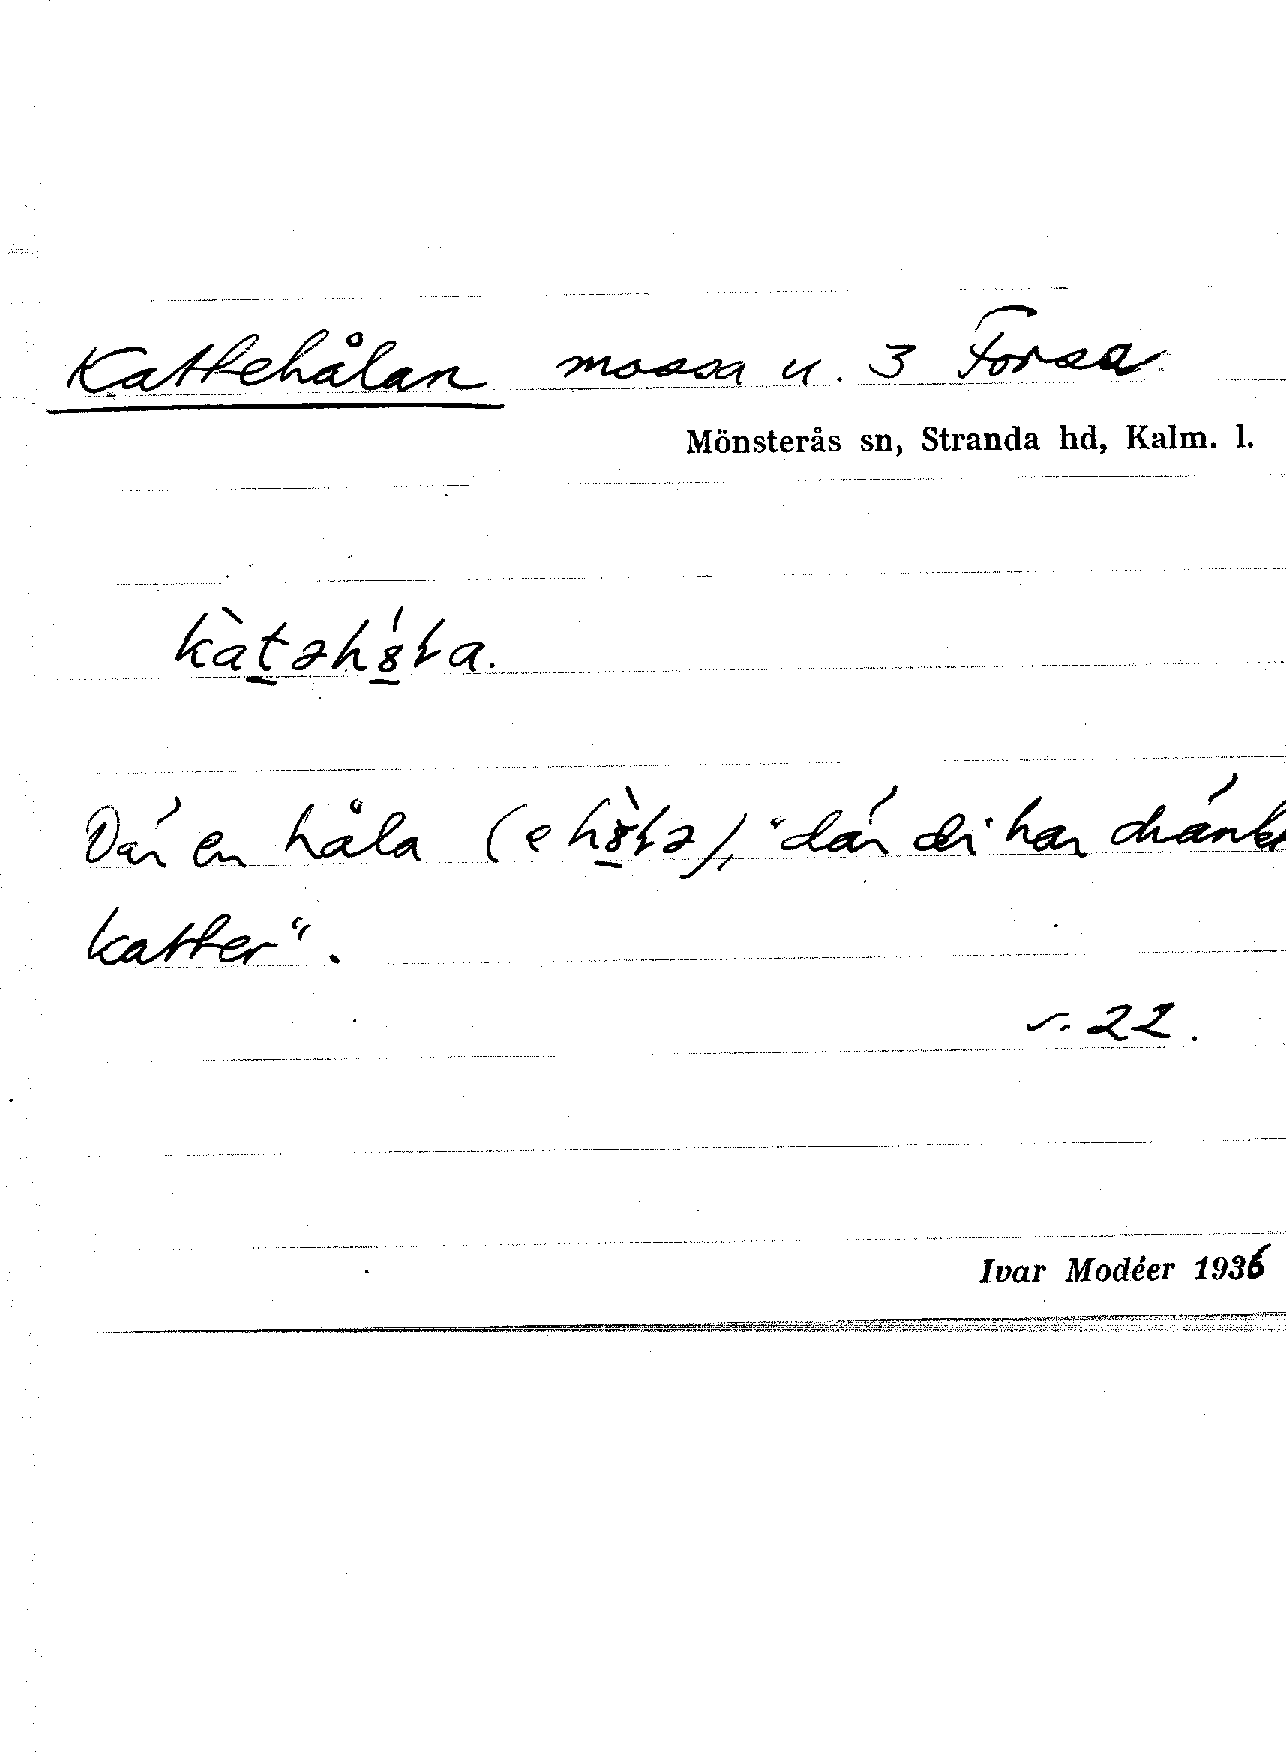 Kattehålan mossa u. 3 Forsa
Mönsterås sn, Stranda hd, Kalm. l.
kàtəhㅎ́ɫa.
Där en håla (e hㅎ̀ɫə), "där di har dränkt
katter".
s. 22.
Ivar Modéer 1936